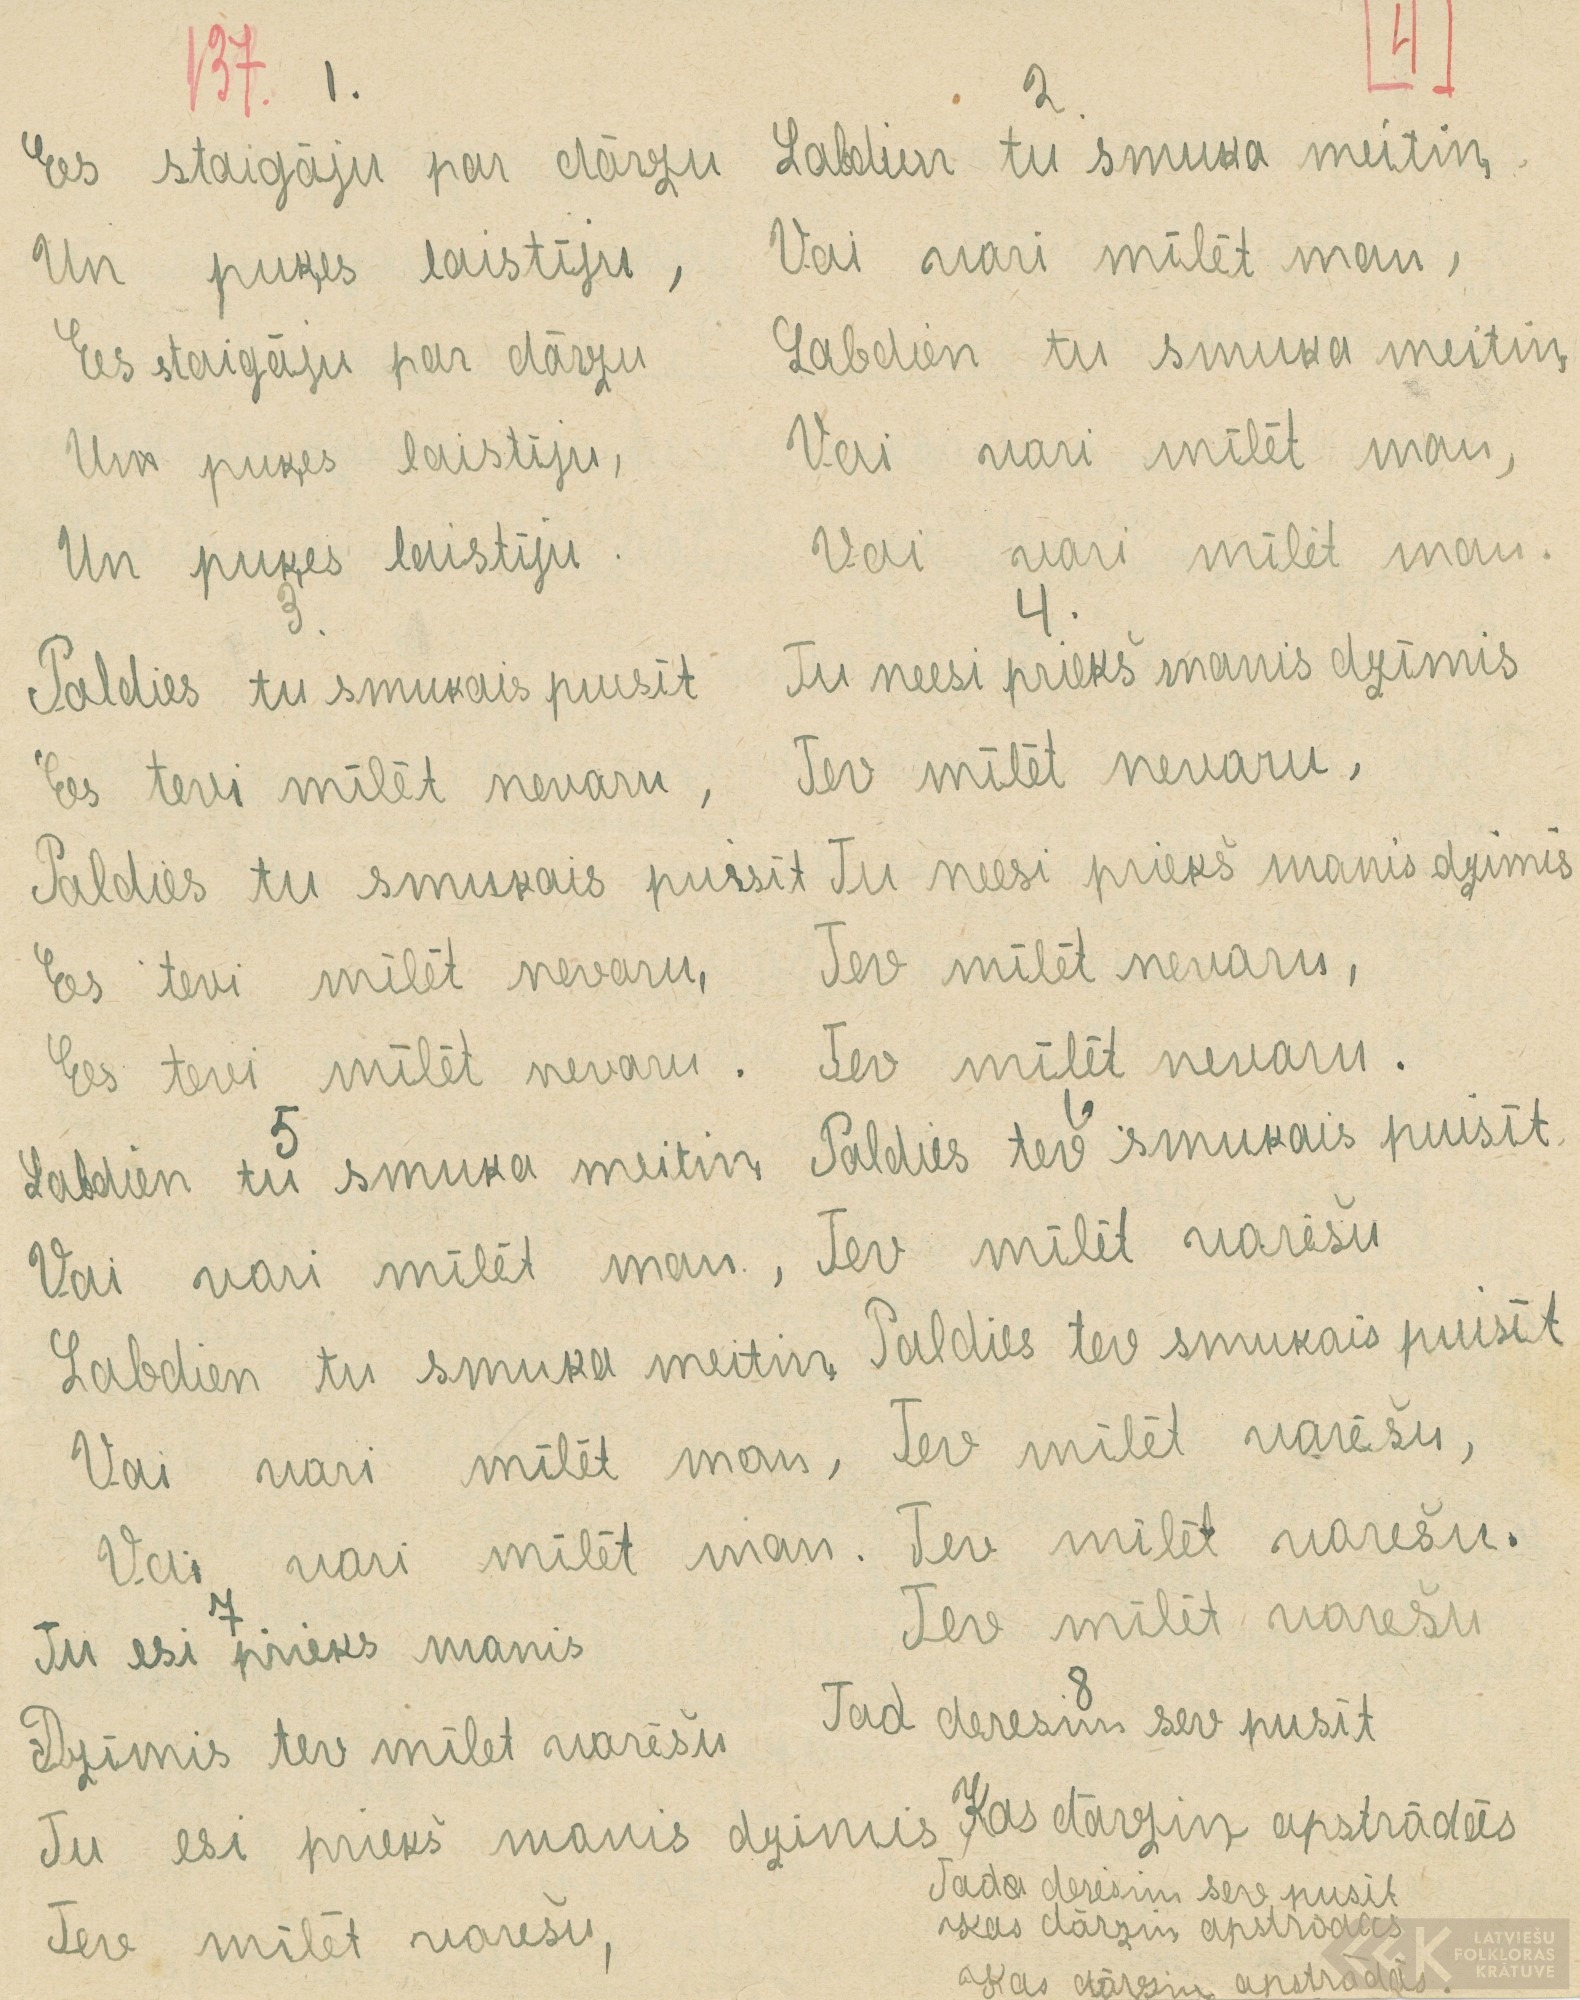 137.
[4]
1.
Ees staigāju par dārzu
Un puķes laistīju,
Ees staigāju par dārzu
Un puķes laistīju,
Un puķes laistīju.
2.
Labdien tu smuka meitiņ
Vai vari mīlēt man,
Labdien tu smuka meitiņ
Vai vari mīlēt man,
Vai vari mīlēt man.
3.
Paldies tu smukais puisīt
Ees tevi mīlēt nevaru,
Paldies tu smukais puisīt
Ees tevi mīlēt nevaru,
Ees tevi mīlēt nevaru.
4.
Tu neesi priekš manis dzīmis
Tev mīlēt nevaru,
Tu neesi priekš manis dzimis
Tev mīlēt nevaru,
Tev mīlēt nevaru.
5
Labdien tu smuka meitiņ
Vai vari mīlēt man,
Labdien tu smuka meitiņ
Vai vari mīlēt man,
Vai vari mīlēt man.
6
Paldies tev smukais puisīt
Tev mīlēt varēšu
Paldies tev smukais puisīt
Tev mīlēt varēšu,
Tev mīlēt varešu.
Tev mīlēt varešu
7
Tu esi prieks manis
Dzīmis tev mīlet varēšu
Tu esi priekš manis dzimis
Tev mīlēt varešu,
8
Tad deresim sev pusīt
Kas dārziņ apstrādās
Tada deresim sev pusīt
Kas dārziņ apstrādās
Kas dārziņ apstrādās.
LATVIEŠU
FOLKLORAS
KRĀTUVE